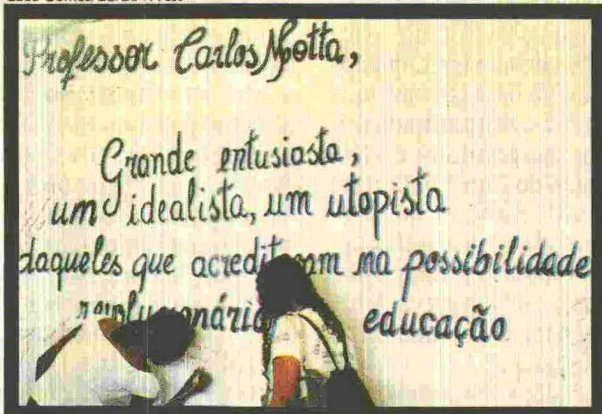 Professor Carlos Motta,
Grande entusiasta,
um idealista, um utopista
daqueles que acreditavam na possibilidade
revolucionária educação